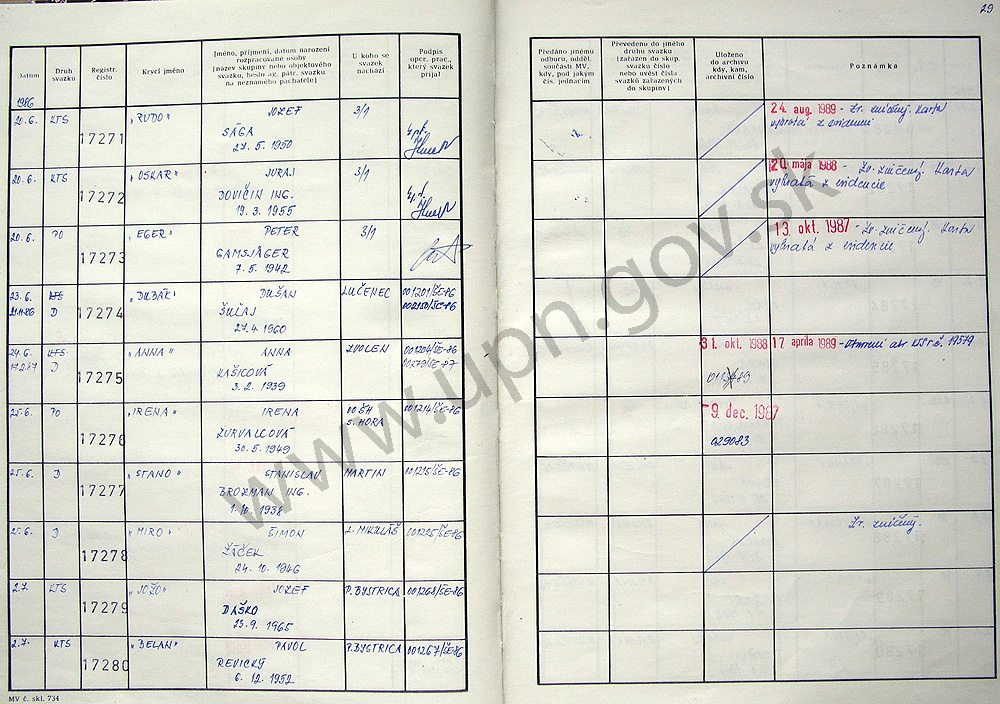 29
Datum
Druh svazku
Registr. číslo
Krycí jméno
Jméno, příjmení, datum narození
rozpracované osoby
(název skupiny nebo objektového
svazku, heslo ag. pátr. svazku
na neznámého pachatele)
U koho se
svazek
nachází
Podpis
oper. prac.,
který svazek
přijal
Předáno jinému
odboru, odděl.
součásti MV,
kdy, pod jakým
čís. jednacím
Převedeno do jiného
druhu svazku
(zařazen do skup.
svazku číslo
nebo uvést čísla
svazků zařazených
do skupiny)
Uloženo
do archivu
kdy, kam,
archivní číslo
Poznámka
1986
20.6. KTS 17271 "RUDO" JOZEF 3/1
SÁGA
27.5.1950
24. aug. 1989 - Zv. zničený. Karta
vybratá z evidencie
20.6. KTS 17272 "OSKAR" JURAJ 3/1
JOVIČIN ING.
19.3.1955
20. mája 1988 - Zv. zničený. Karta
vybratá z evidencie
20.6. PO 17273 "EGER" PETER 3/1
GAMSJÄGER
7.5.1942
13. okt. 1987 - Zv. zničený. Karta
vybratá z evidencie
23.6. KTS 17274 "DUBÁK" DUŠAN LUČENEC 001201/ŠE-86
21.11.86 D ŠUĽAJ 002150/ŠE-86
27.4.1960
24.6. KTS 17275 "ANNA" ANNA ZVOLEN 001204/ŠE-86
17.2.87 D KAŠICOVÁ 00279/ŠE-87
3.2.1939
31. okt. 1988 17. apríla 1989 - 19579
25.6. PO 17276 "IRENA" IRENA OO ŠH 001214/ŠE-86
S. HORA
ZURVALCOVÁ
30.5.1949
9. dec. 1987
029083
25.6. D 17277 "STANO" STANISLAV MARTIN 001215/ŠE-86
BROZMAN ING.
1.10.1938
25.6. D 17278 "MIRO" ŠIMON L. MIKULÁŠ 001225/ŠE-86
ŽÁČEK
24.10.1946
Zv. zničený.
2.7. KTS 17279 "JOŽO" JOZEF P. BYSTRICA 001268/ŠE-86
DAŠKO
23.9.1965
2.7. KTS 17280 "BELAN" PAVOL P. BYSTRICA 001267/ŠE-86
REVICKÝ
6.12.1952
MV č. skl. 734
www.upn.gov.sk